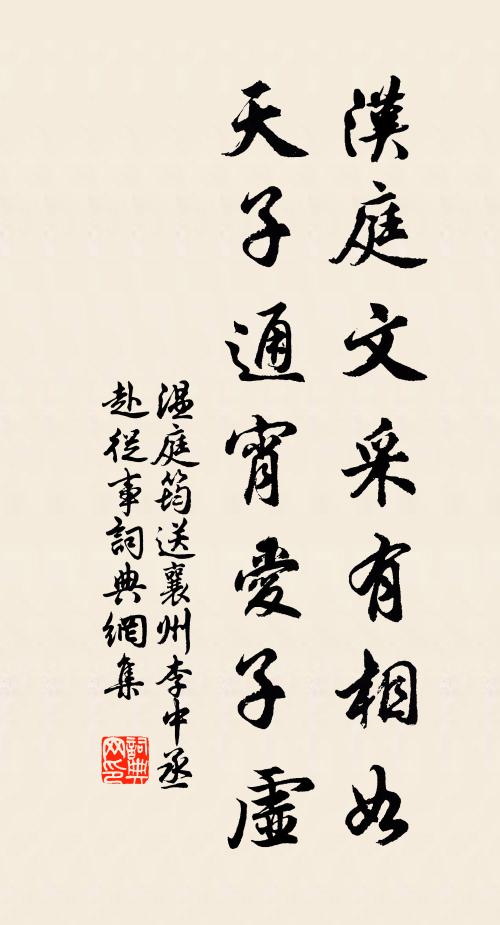 漢庭文采有相如
天子通宵愛子虛
溫庭筠送襄州李中丞
赴從事詞典網集
詞典網印